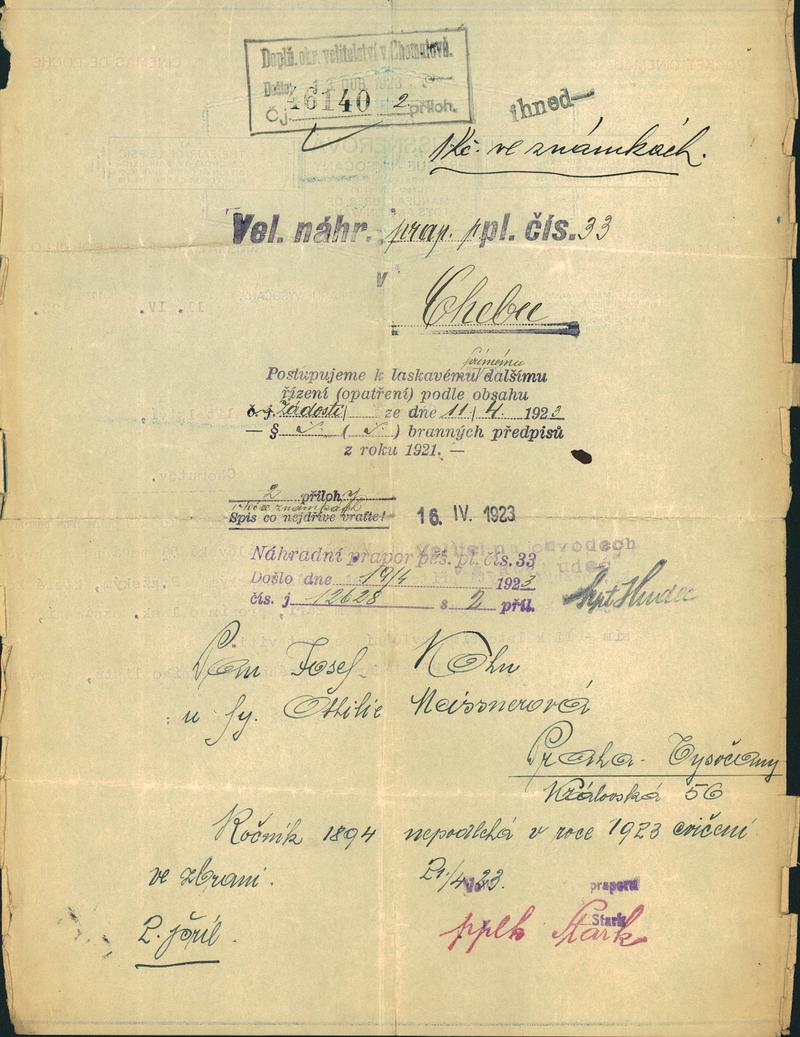 Doplň. okr. velitelství v Chomutově.
Došlo: 13 DUB 1923
Čj. 46140 2 příloh.
ihned
1 Kč. ve známkách.
Vel. náhr. prap. p pl. čís. 33
v
Chebu
Postupujeme k laskavému dalšímu
přímému
řízení (opatření) podle obsahu
č. j. žádosti ze dne 11/4 1923
— § ( ) branných předpisů
z roku 1921. —
2 přílohy
1 Kč ve známkách
Spis co nejdříve vraťte!
16. IV. 1923
Náhradní prapor pěš. pl. čís. 33
Došlo dne 19/4 1923
čís. j 12628 s 2 příl.
Pan Josef Kohn
u fy. Ottilie Meissnerová
Praha - Vysočany
Královská 56
Ročník 1894 nepodléhá v roce 1923 cvičení
ve zbrani.
21/4 23.
praporu
Stark
2. příl.
pplk Stark